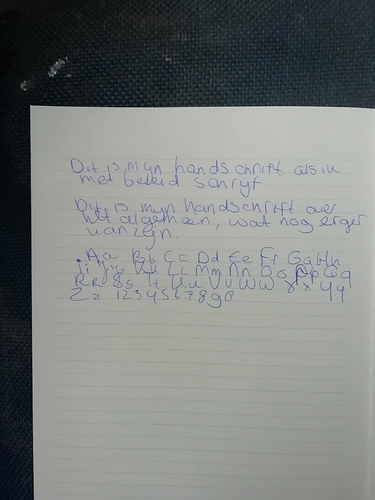 Dit is mijn handschrift als ik
met beleid schrijf
Dit is mijn handschrift over
het algemeen, wat nog erger
kan zijn.
Aa Bb Cc Dd Ee Ff Gg Hh
Ii Jj Kk Ll Mm Nn Oo Pp Qq
Rr Ss Tt Uu Vv Ww Xx Yy
Zz 1234567890